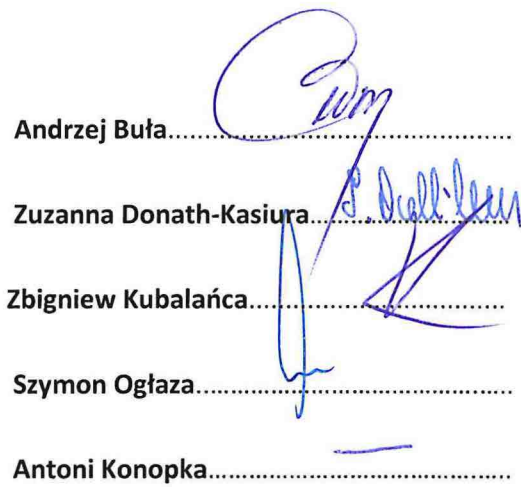 Andrzej Buła..........................................
Zuzanna Donath-Kasiura........................
Zbigniew Kubalańca................................
Szymon Ogłaza.......................................
Antoni Konopka.....................................